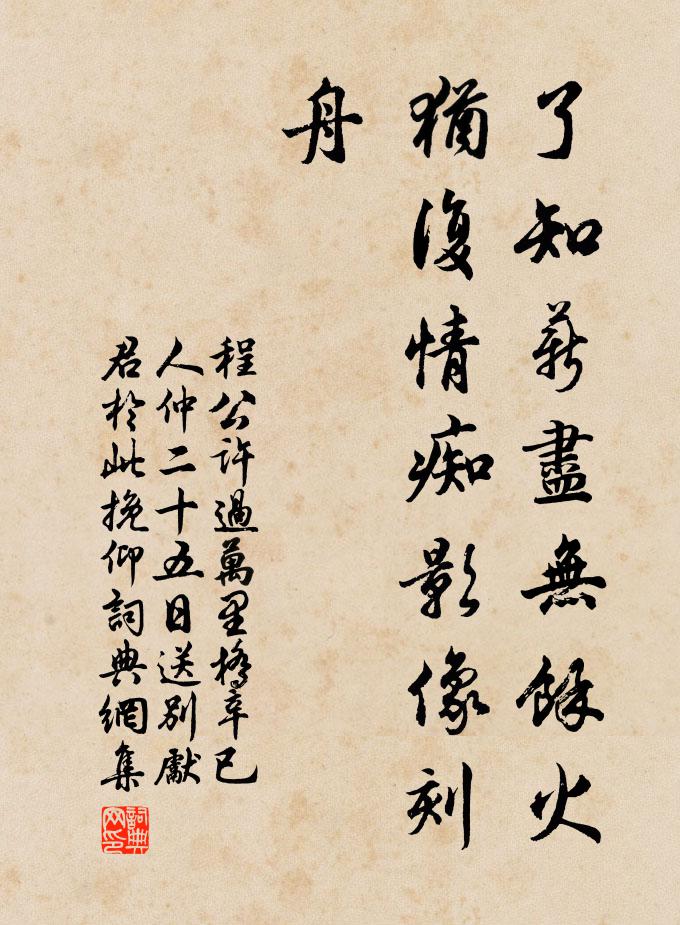 了知薪盡無餘火
猶復情痴影像刻
舟
程公許過萬里橋辛巳
人仲二十五日送別獻
君於此挽仰詞典網集
詞典
网印